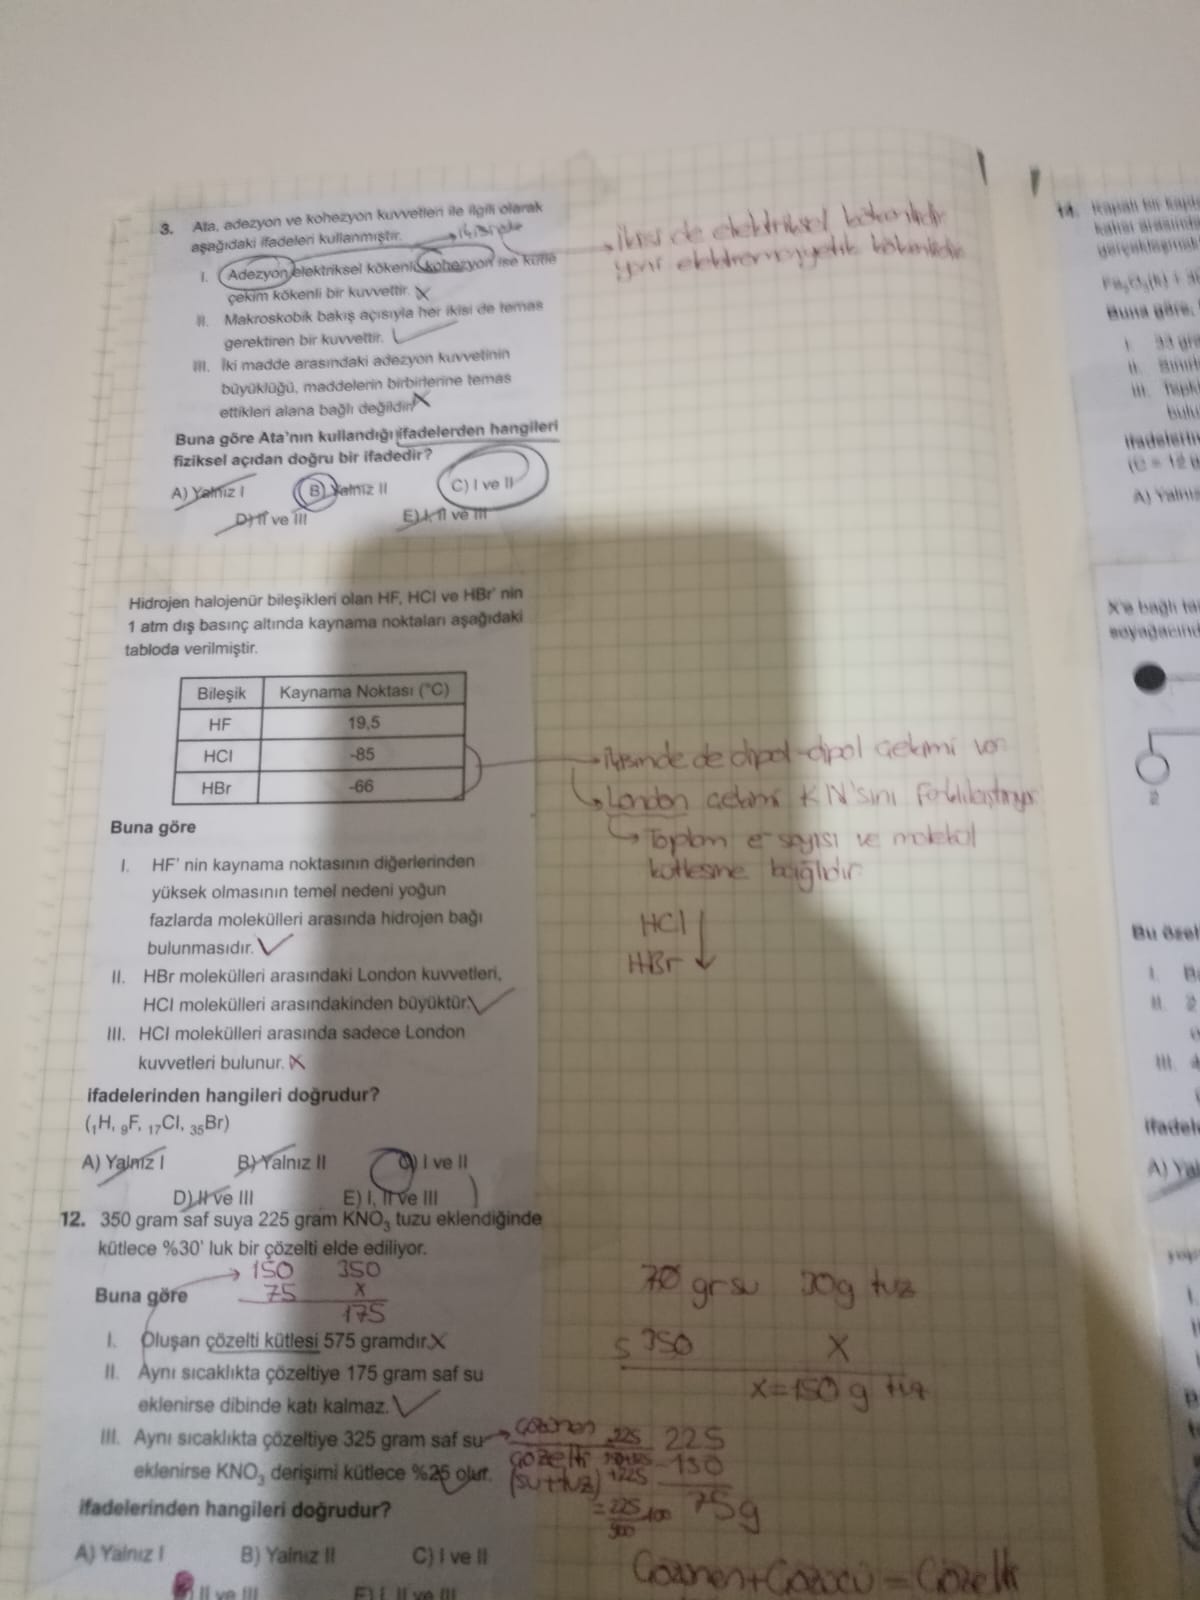 3. Ata, adezyon ve kohezyon kuvvetleri ile ilgili olarak
aşağıdaki ifadeleri kullanmıştır.
I. Adezyon elektriksel kökenli, kohezyon ise kütle
çekim kökenli bir kuvvettir. X
II. Makroskobik bakış açısıyla her ikisi de temas
gerektiren bir kuvvettir.
III. İki madde arasındaki adezyon kuvvetinin
büyüklüğü, maddelerin birbirlerine temas
ettikleri alana bağlı değildir. X
Buna göre Ata'nın kullandığı ifadelerden hangileri
fiziksel açıdan doğru bir ifadedir?
A) Yalnız I B) Yalnız II C) I ve II
D) II ve III E) I, II ve III
ikisi de elektriksel kökenlidir
yani elektromanyetik kökenlidir
Hidrojen halojenür bileşikleri olan HF, HCl ve HBr' nin
1 atm dış basınç altında kaynama noktaları aşağıdaki
tabloda verilmiştir.
Bileşik Kaynama Noktası (°C)
HF 19,5
HCl -85
HBr -66
ikisinde de dipol-dipol çekimi var
London çekimi KN'sını farklılaştırıyor
Toplam e- sayısı ve molekül
kütlesine bağlıdır
HCl
HBr
Buna göre
I. HF' nin kaynama noktasının diğerlerinden
yüksek olmasının temel nedeni yoğun
fazlarda molekülleri arasında hidrojen bağı
bulunmasıdır.
II. HBr molekülleri arasındaki London kuvvetleri,
HCl molekülleri arasındakinden büyüktür.
III. HCl molekülleri arasında sadece London
kuvvetleri bulunur. X
ifadelerinden hangileri doğrudur?
(₁H, ₉F, ₁₇Cl, ₃₅Br)
A) Yalnız I B) Yalnız II C) I ve II
D) II ve III E) I, II ve III
12. 350 gram saf suya 225 gram KNO₃ tuzu eklendiğinde
kütlece %30' luk bir çözelti elde ediliyor.
150 350
75 X
175
Buna göre
I. Oluşan çözelti kütlesi 575 gramdır. X
II. Aynı sıcaklıkta çözeltiye 175 gram saf su
eklenirse dibinde katı kalmaz.
III. Aynı sıcaklıkta çözeltiye 325 gram saf su
eklenirse KNO₃ derişimi kütlece %25 olur.
ifadelerinden hangileri doğrudur?
A) Yalnız I B) Yalnız II C) I ve II
II ve III E) I, II ve III
70 gr su 30g tuz
5 350 X
X=150 g tuz
çözünen 225
çözelti
(su+tuz) +225
= 225
900 100
225
150
75g
Çözünen+Çözücü = Çözelti
14. Kapalı bir kapta
Buna göre,
I. 33
II.
III.
A) Yalnız
X'e bağlı
soyağacında
2
Bu özel
I.
II. 2
III.
ifadele
A) Ya